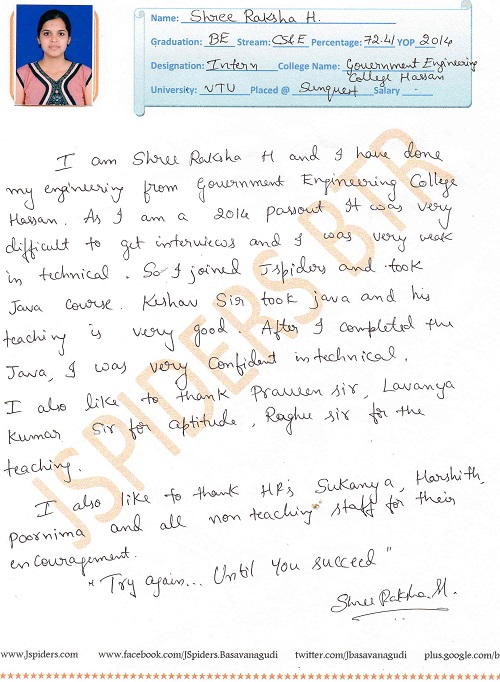 Name: Shree Raksha H.
Graduation: BE Stream: CS&E Percentage: 72.4/ YOP 2014
Designation: Intern College Name: Government Engineering
College Hassan
University: VTU Placed @ Sunquest Salary -
I am Shree Raksha H and I have done
my engineering from Government Engineering College
Hassan. As I am a 2014 passout It was very
difficult to get interviews and I was very weak
in technical. So I joined Jspiders and took
Java course. Keshav Sir took java and his
teaching is very good. After I completed the
Java, I was very Confident in technical.
I also like to thank Praveen sir, Lavanya
Kumar Sir for aptitude, Raghu sir for the
teaching.
I also like to thank HR's Sukanya, Harshith,
Poornima and all non teaching staff for their
encouragement.
"Try again... Until You succeed"
Shree Raksha.H.
JSPIDERS BTR
www.Jspiders.com www.facebook.com/JSpiders.Basavanagudi twitter.com/Jbasavanagudi plus.google.com/b